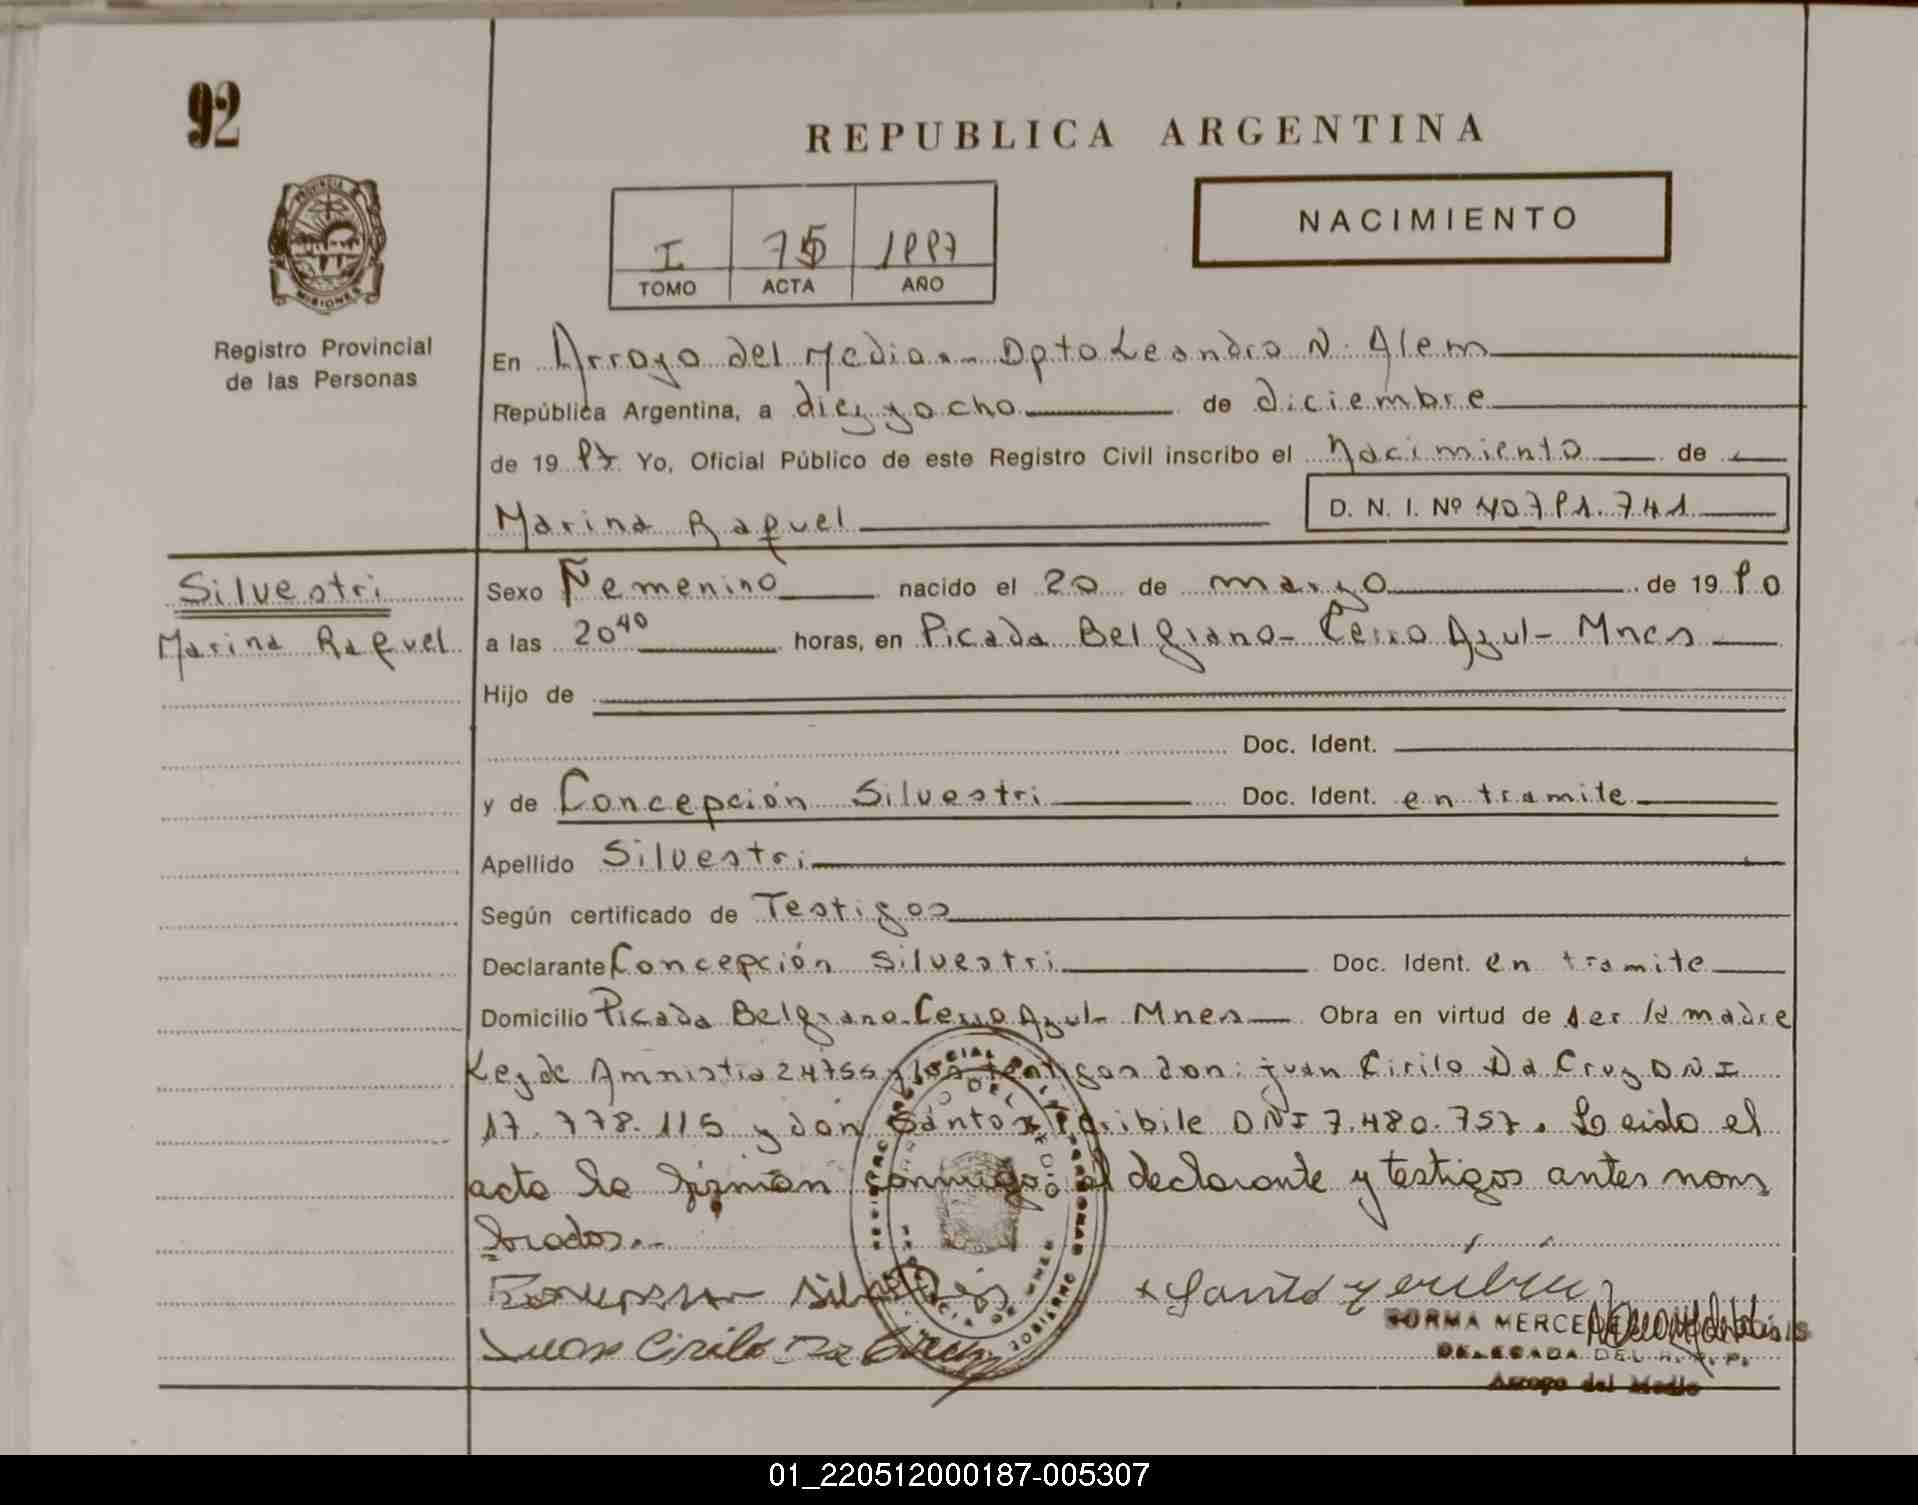 92
REPUBLICA ARGENTINA
PROVINCIA DE
MISIONES
Registro Provincial
de las Personas
NACIMIENTO
I 75 1997
TOMO ACTA AÑO
En Arroyo del Medio - Dpto Leandro N. Alem
República Argentina, a diez y ocho de diciembre
de 19 97 Yo, Oficial Público de este Registro Civil inscribo el Nacimiento de
Marina Raquel D. N. I. Nº 40.791.741
Silvestri
Marina Raquel
Sexo Femenino nacido el 20 de marzo de 19 90
a las 20 40 horas, en Picada Belgrano - Cerro Azul - Mnes
Hijo de
Doc. Ident.
y de Concepción Silvestri Doc. Ident. en tramite
Apellido Silvestri
Según certificado de Testigos
Declarante Concepción Silvestri Doc. Ident. en tramite
Domicilio Picada Belgrano - Cerro Azul - Mnes Obra en virtud de ser la madre
Ley de Amnistia 24755 y los testigos don: juan Cirilo Da Cruz DNI
17.778.115 y don Santo DNI 7.480.757. Leida el
acta la firman conmigo el declarante y testigos antes nom
brados.-
Silvestri
Juan Cirilo Da Cruz
NORMA MERCEDES
DELEGADA DEL R. P. P.
Arroyo del Medio
01_220512000187-005307